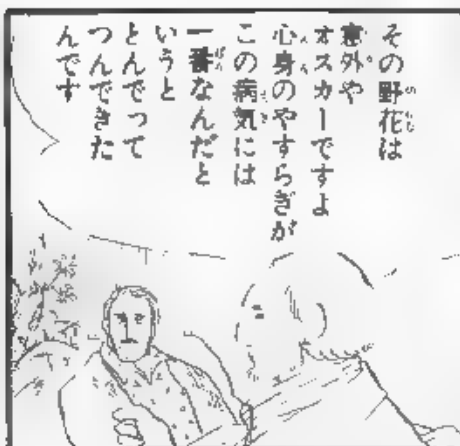 その野花は
意外や
オスカーですよ
心身のやすらぎが
この病気には
一番なんだと
いうと
とんでって
つんできた
んです